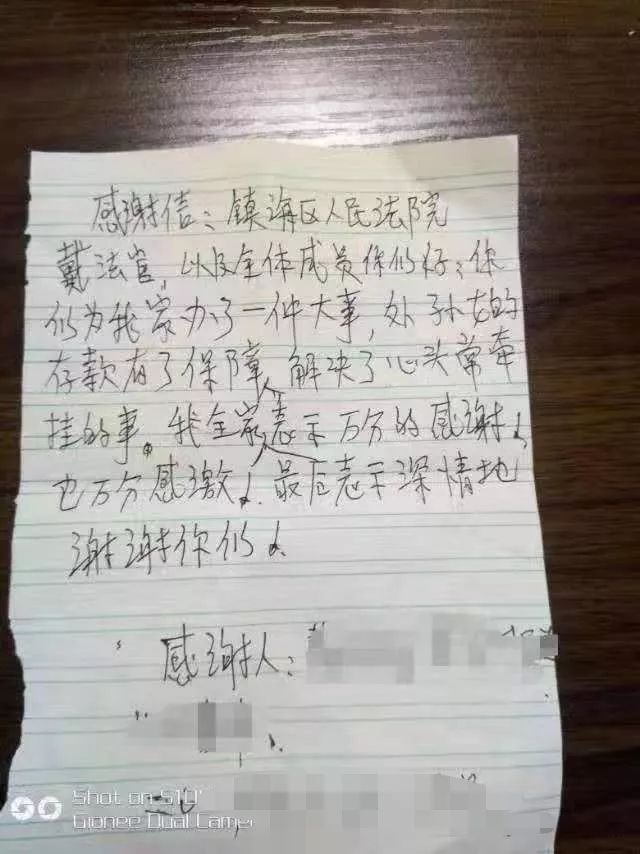 感谢信：镇海区人民法院
戴法官，以及全体成员你们好：你
们为我家办了一件大事，外孙女的
存款有了保障，解决了心头常牵
挂的事。我全家人表示万分的感谢，
也万分感激，最后表示深情地
谢谢你们。
感谢人：
Shot on S10
Gionee Dual Camer